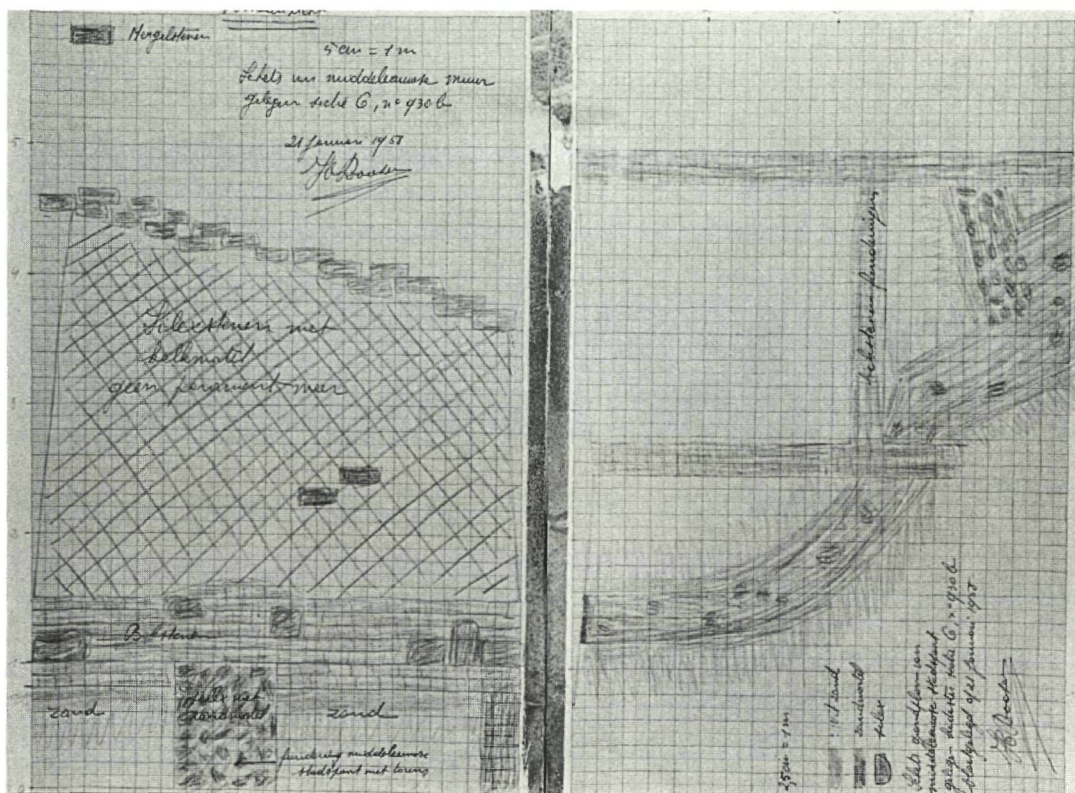 Mergelstenen
5 cm = 1 m
Schets van middeleeuwse muur
gelegen sectie C, n° 930 b
21 januari 1958
5
4
3
2
1
0
Silexstenen met
kalkmortel
geen parament meer
Bakstenen
zand
Silex met
zandmortel
zand
fundering middeleeuwse
stadspoort met torens
Bakstenen funderingen
25 cm = 1 m
: zand
zandmortel
silex
Schets grondplan van
middeleeuwse stadspoort
gelegen sectie C, n° 930 b
blootgelegd op januari